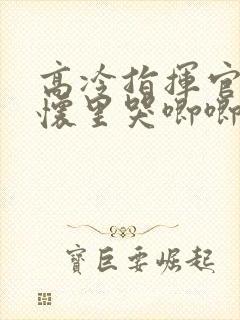 高冷指揮官
懷里哭唧唧
寶巨要崛起